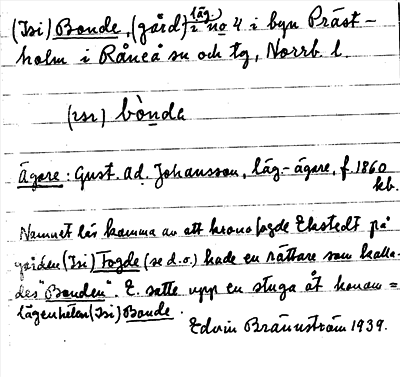 (Isi) Bonde, (gård) läg. 2 no 4 i byn Präst-
holm i Råneå sn och tg, Norrb. l.
(ɪsɪ) bònda
Ägare: Gust. Ad. Johansson, läg.-ägare, f. 1860
kb.
Namnet lär komma av att kronofogde Ekstedt på
gården (Isi) Fogde (se d.o.) hade en rättare som kalla-
des "Bonden". E. satte upp en stuga åt honom =
lägenheten (Isi) Bonde.
Edvin Brännström 1939.